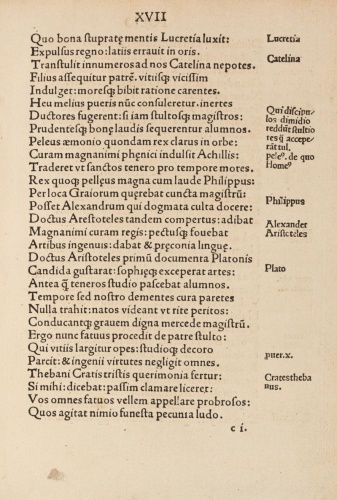 XVII
Quo bona stupratę mentis Lucretia luxit:
Expulsus regno: latiis errauit in oris.
Transtulit innumeros ad nos Catelina nepotes.
Filius assequitur patrē. vitiisq; vicissim
Indulget: moresq; bibit ratione carentes.
Heu melius pueris nūc consuleretur. inertes
Ductores fugerent: si iam stultosq; magistros:
Prudentesq; bonę laudis sequerentur alumnos.
Peleus æmonio quondam rex clarus in orbe:
Curam magnanimi phęnici indulsit Achillis:
Traderet vt sanctos tenero pro tempore mores.
Rex quoq; pellęus magna cum laude Philippus:
Per loca Graiorum quęrebat cuncta magistrū:
Posset Alexandrum qui dogmata culta docere:
Doctus Arestoteles tandem compertus: adibat
Magnanimi curam regis: pectusq; fouebat
Artibus ingenuis: dabat & pręconia linguę.
Doctus Aristoteles primū documenta Platonis
Candida gustarat: sophięq; exceperat artes:
Antea q̄ teneros studio pascebat alumnos.
Tempore sed nostro dementes cura paretes
Nulla trahit: natos videant vt rite peritos:
Conducantq; grauem digna mercede magistrū.
Ergo nunc fatuus procedit de patre stulto:
Qui vitiis largitur opes: studioq; decoro
Parcit: & ingenii virtutes negligit omnes.
Thebani Cratis tristis querimonia fertur:
Si mihi: dicebat: passim clamare liceret:
Vos omnes fatuos vellem appellare probrosos:
Quos agitat nimio funesta pecunia ludo.
c i.
Lucretia
Catelina
Qui discipu
los dimidio
reddūt stultio
res ꝗ accepe
rāt tul.
peleꝰ. de quo
Homeꝰ
Philippus
Alexander
Aristoteles
Plato
iuuer.x.
Cratestheba
nus.